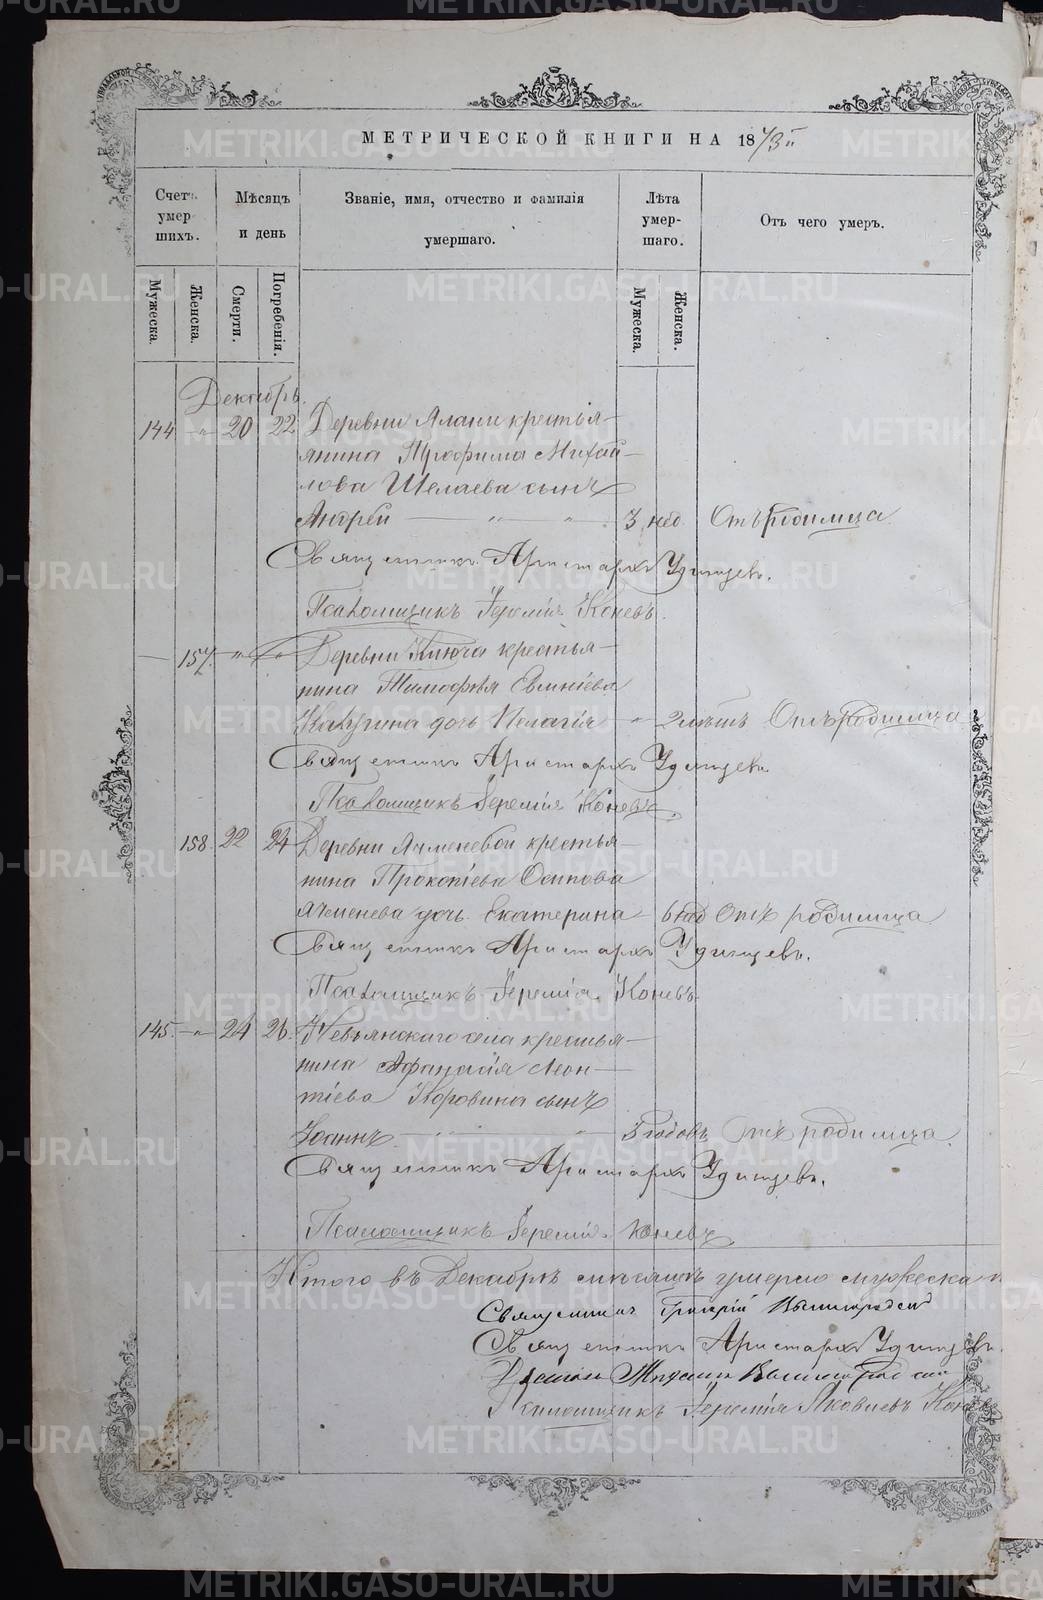 МЕТРИЧЕСКОЙ КНИГИ НА 1873
Счетъ умершихъ.
Мѣсяцъ и день
Званіе, имя, отчество и фамилія умершаго.
Лѣта умершаго.
Отъ чего умеръ.
Мужеска.
Женска.
Смерти.
Погребенія.
Мужеска.
Женска.
Декабрь.
144 " 20 22 Деревни Алапи крестья-
янина Трофима Михай-
лова Шелаева сынъ
Андрей — " — " 3 нед. Отъ родимца.
Священникъ Аристархъ Удинцевъ.
Псаломщикъ Іеремія Коневъ.
— 157. " " Деревни Ключа крестья-
нина Тимофѣя
дочь Пелагія " 2 лѣтъ Отъ родимца
Священникъ Аристархъ Удинцевъ.
Псаломщикъ Іеремія Коневъ.
158. 22 24 Деревни Ячменевой крестья-
нина Прокопіева Осипова
Ячменева дочь Екатерина — 6 нед Отъ родимца
Священникъ Аристархъ Удинцевъ.
Псаломщикъ Іеремія Коневъ.
145. " 24 26. Невьянскаго села крестья-
нина Афанасія Леон-
тіева Коровина сынъ
Іоаннъ. 3 годовъ Отъ родимца.
Священникъ Аристархъ Удинцевъ.
Псаломщикъ Іеремія Коневъ
Итого въ Декабрѣ мѣсяцѣ умерло мужеска п
Священникъ Григорій
Священникъ Аристархъ Удинцевъ.
Псаломщикъ Іеремія Яковлевъ Коне
METRIKI.GASO-URAL.RU